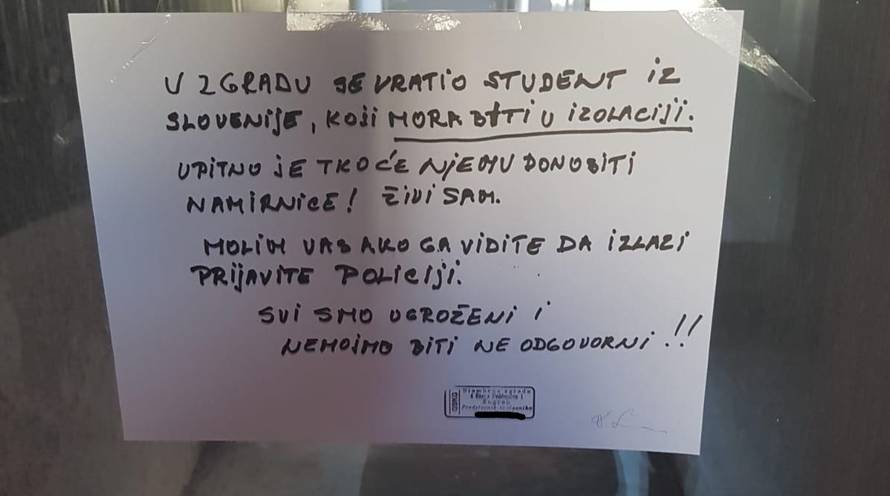 U ZGRADU SE VRATIO STUDENT IZ
SLOVENIJE, KOJI MORA BITI U IZOLACIJI.
UPITNO JE TKO ĆE NJEMU DONOSITI
NAMIRNICE! ŽIVI SAM.
MOLIM VAS AKO GA VIDITE DA IZLAZI
PRIJAVITE POLICIJI.
SVI SMO UGROŽENI I
NEMOJMO BITI NE ODGOVORNI!!
Stambena zgrada
Zagreb